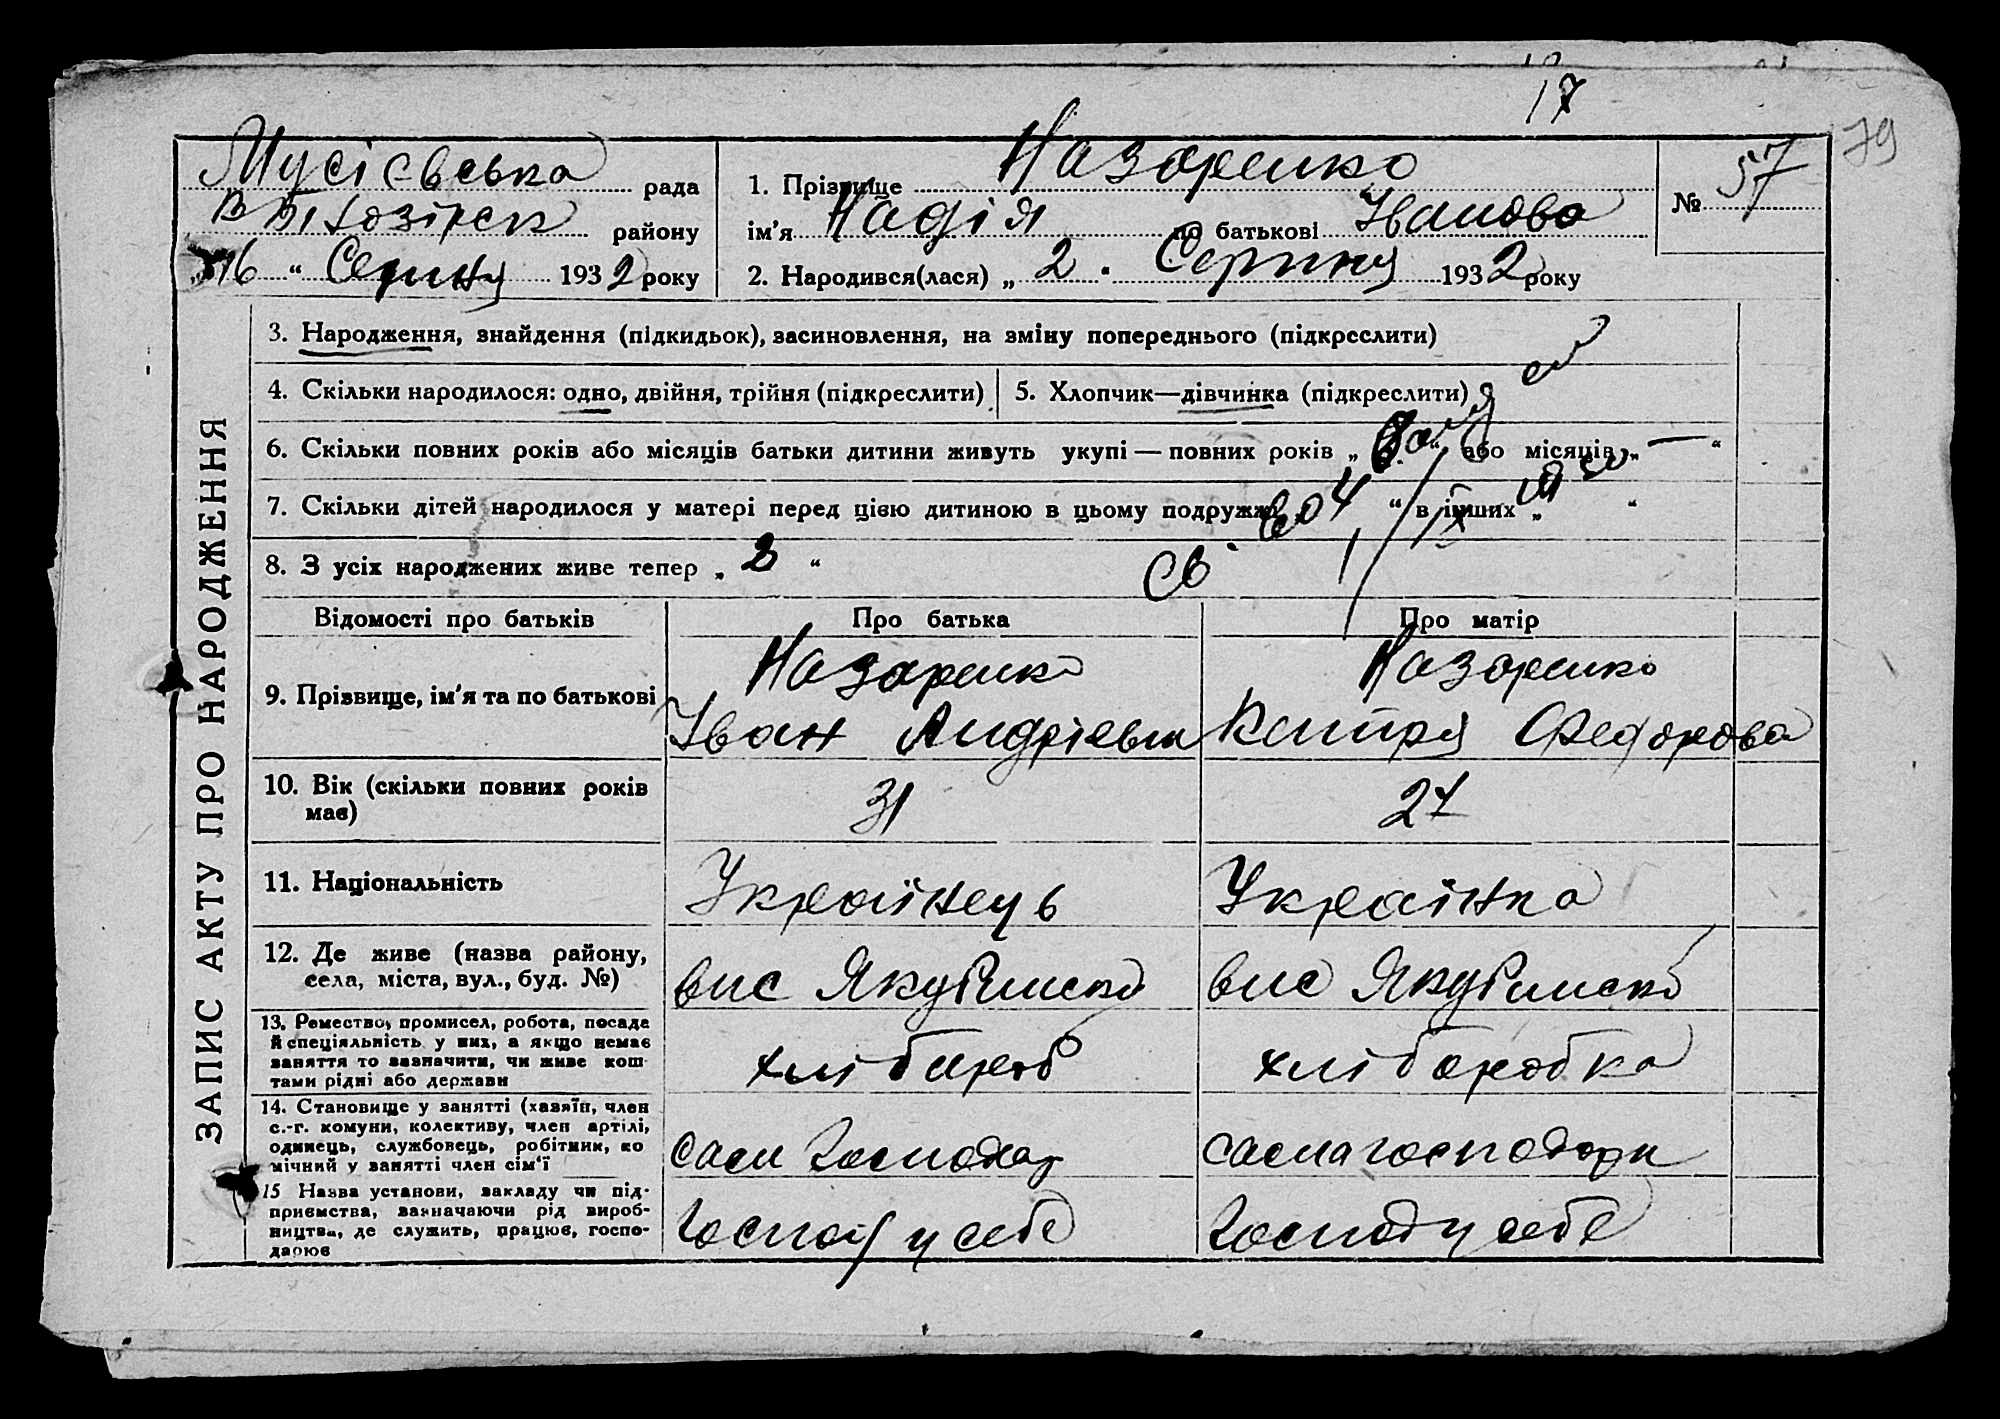 17
79
Мусієвська рада
району
16 “ Серпня 1932 року
1. Прізвище Назаренко
ім’я Надія по батькові Іванова
2. Народився(лася) „ 2 “ Серпня 1932 року
№ 57
ЗАПИС АКТУ ПРО НАРОДЖЕННЯ
3. Народження, знайдення (підкидьок), засиновлення, на зміну попереднього (підкреслити)
4. Скільки народилося: одно, двійня, трійня (підкреслити)
5. Хлопчик—дівчинка (підкреслити)
6. Скільки повних років або місяців батьки дитини живуть укупі — повних років „ “ або місяців „ — “
7. Скільки дітей народилося у матері перед цією дитиною в цьому подружжі “ в інших „ “
8. З усіх народжених живе тепер „ 3 “
Відомості про батьків
Про батька
Про матір
9. Прізвище, ім’я та по батькові
Назаренко
Іван Андрієвич
Назаренко
Катря Федорова
10. Вік (скільки повних років
має)
31
27
11. Національність
Українець
Українка
12. Де живе (назва району,
села, міста, вул., буд. №)
вис Якубинсько
вис Якубинсько
13. Ремество, промисел, робота, посада
й спеціяльність у них, а якщо немає
заняття то зазначити, чи живе кош
тами рідні або держави
хлібороб
хліборобка
14. Становище у занятті (хазяїн, член
с.-г. комуни, колективу, член артілі,
одинець, службовець, робітник, ко
мічний у занятті член сім‘ї
сам господар
сама господарк
15 Назва установи, закладу чи під-
приємства, зазначаючи рід вироб-
ництва, де служить, працює, госпо-
дарює
Господ у себе
Господ у себе